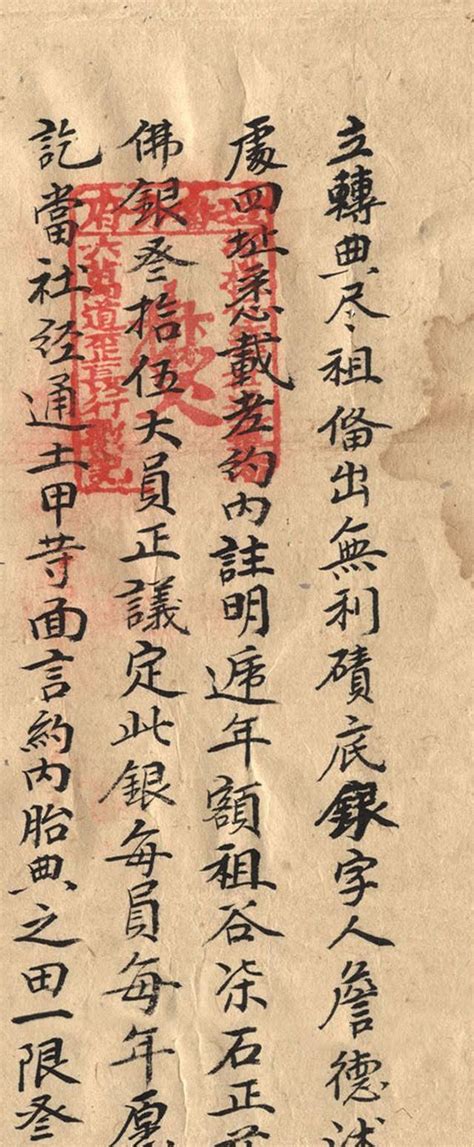 立轉典尽租俻出無利磧底銀字人詹德
處四址悉載老約内註明逓年額租谷柒石正
佛銀叁拾伍大員正議定此銀每員每年愿
訖當社经通土甲䒭面言約内胎典之田一限叁